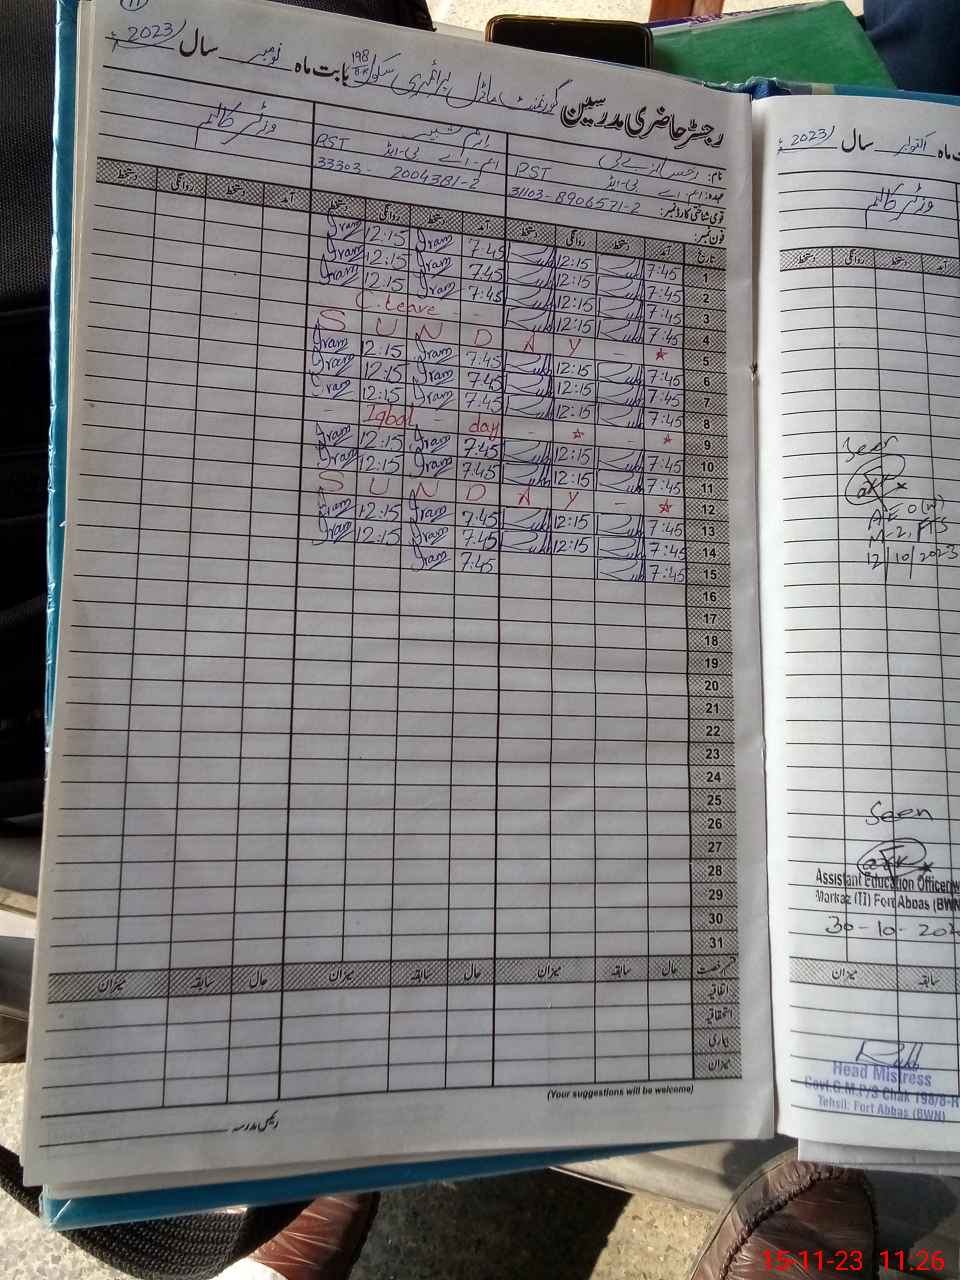 رجسٹر حاضری مدرسین گورنمنٹ ماڈل پرائمری سکول 198/8-R بابت ماہ نومبر سال 2023ء
نام:
عہدہ: ایم۔اے بی-ایڈ PST
ایم-اے بی-ایڈ PST
وزٹر کالم
قومی شناختی کارڈ نمبر: 31103-8906571-2
33303-2004381-2
فون نمبر:
تاریخ آمد دستخط روانگی دستخط آمد دستخط روانگی دستخط آمد دستخط روانگی دستخط
1 7:45 12:15 7:45 Iram 12:15 Iram
2 7:45 12:15 7:45 Iram 12:15 Iram
3 7:45 12:15 7:45 Iram 12:15 Iram
4 7:45 12:15 C.leave - -
5 S U N D A Y - ★
6 7:45 12:15 7:45 Iram 12:15 Iram
7 7:45 12:15 7:45 Iram 12:15 Iram
8 7:45 12:15 7:45 Iram 12:15 Iram
9 - Iqbal - day - ★ - ★
10 7:45 12:15 7:45 Iram 12:15 Iram
11 7:45 12:15 7:45 Iram 12:15 Iram
12 S U N D A Y - ★
13 7:45 12:15 7:45 Iram 12:15 Iram
14 7:45 12:15 7:45 Iram 12:15 Iram
15 7:45 7:45 Iram
16
17
18
19
20
21
22
23
24
25
26
27
28
29
30
31
قسم رخصت حال سابقہ میزان حال سابقہ میزان حال سابقہ میزان
اتفاقیہ
استحقاقیہ
بیماری
میزان
(Your suggestions will be welcome)
رئیس مدرسہ
ماہ اکتوبر سال 2023ء
وزٹر کالم
آمد دستخط روانگی دستخط
Seen
AEO (W)
M-2, FTS
12/10/2023
Seen
Assistant Education Officer
Markaz (II) Fort Abbas (BWN)
30-10-
سابقہ میزان
Head Mistress
Govt.G.M.P/S Chak 198/8-R
Tehsil: Fort Abbas (BWN)
15-11-23 11:26